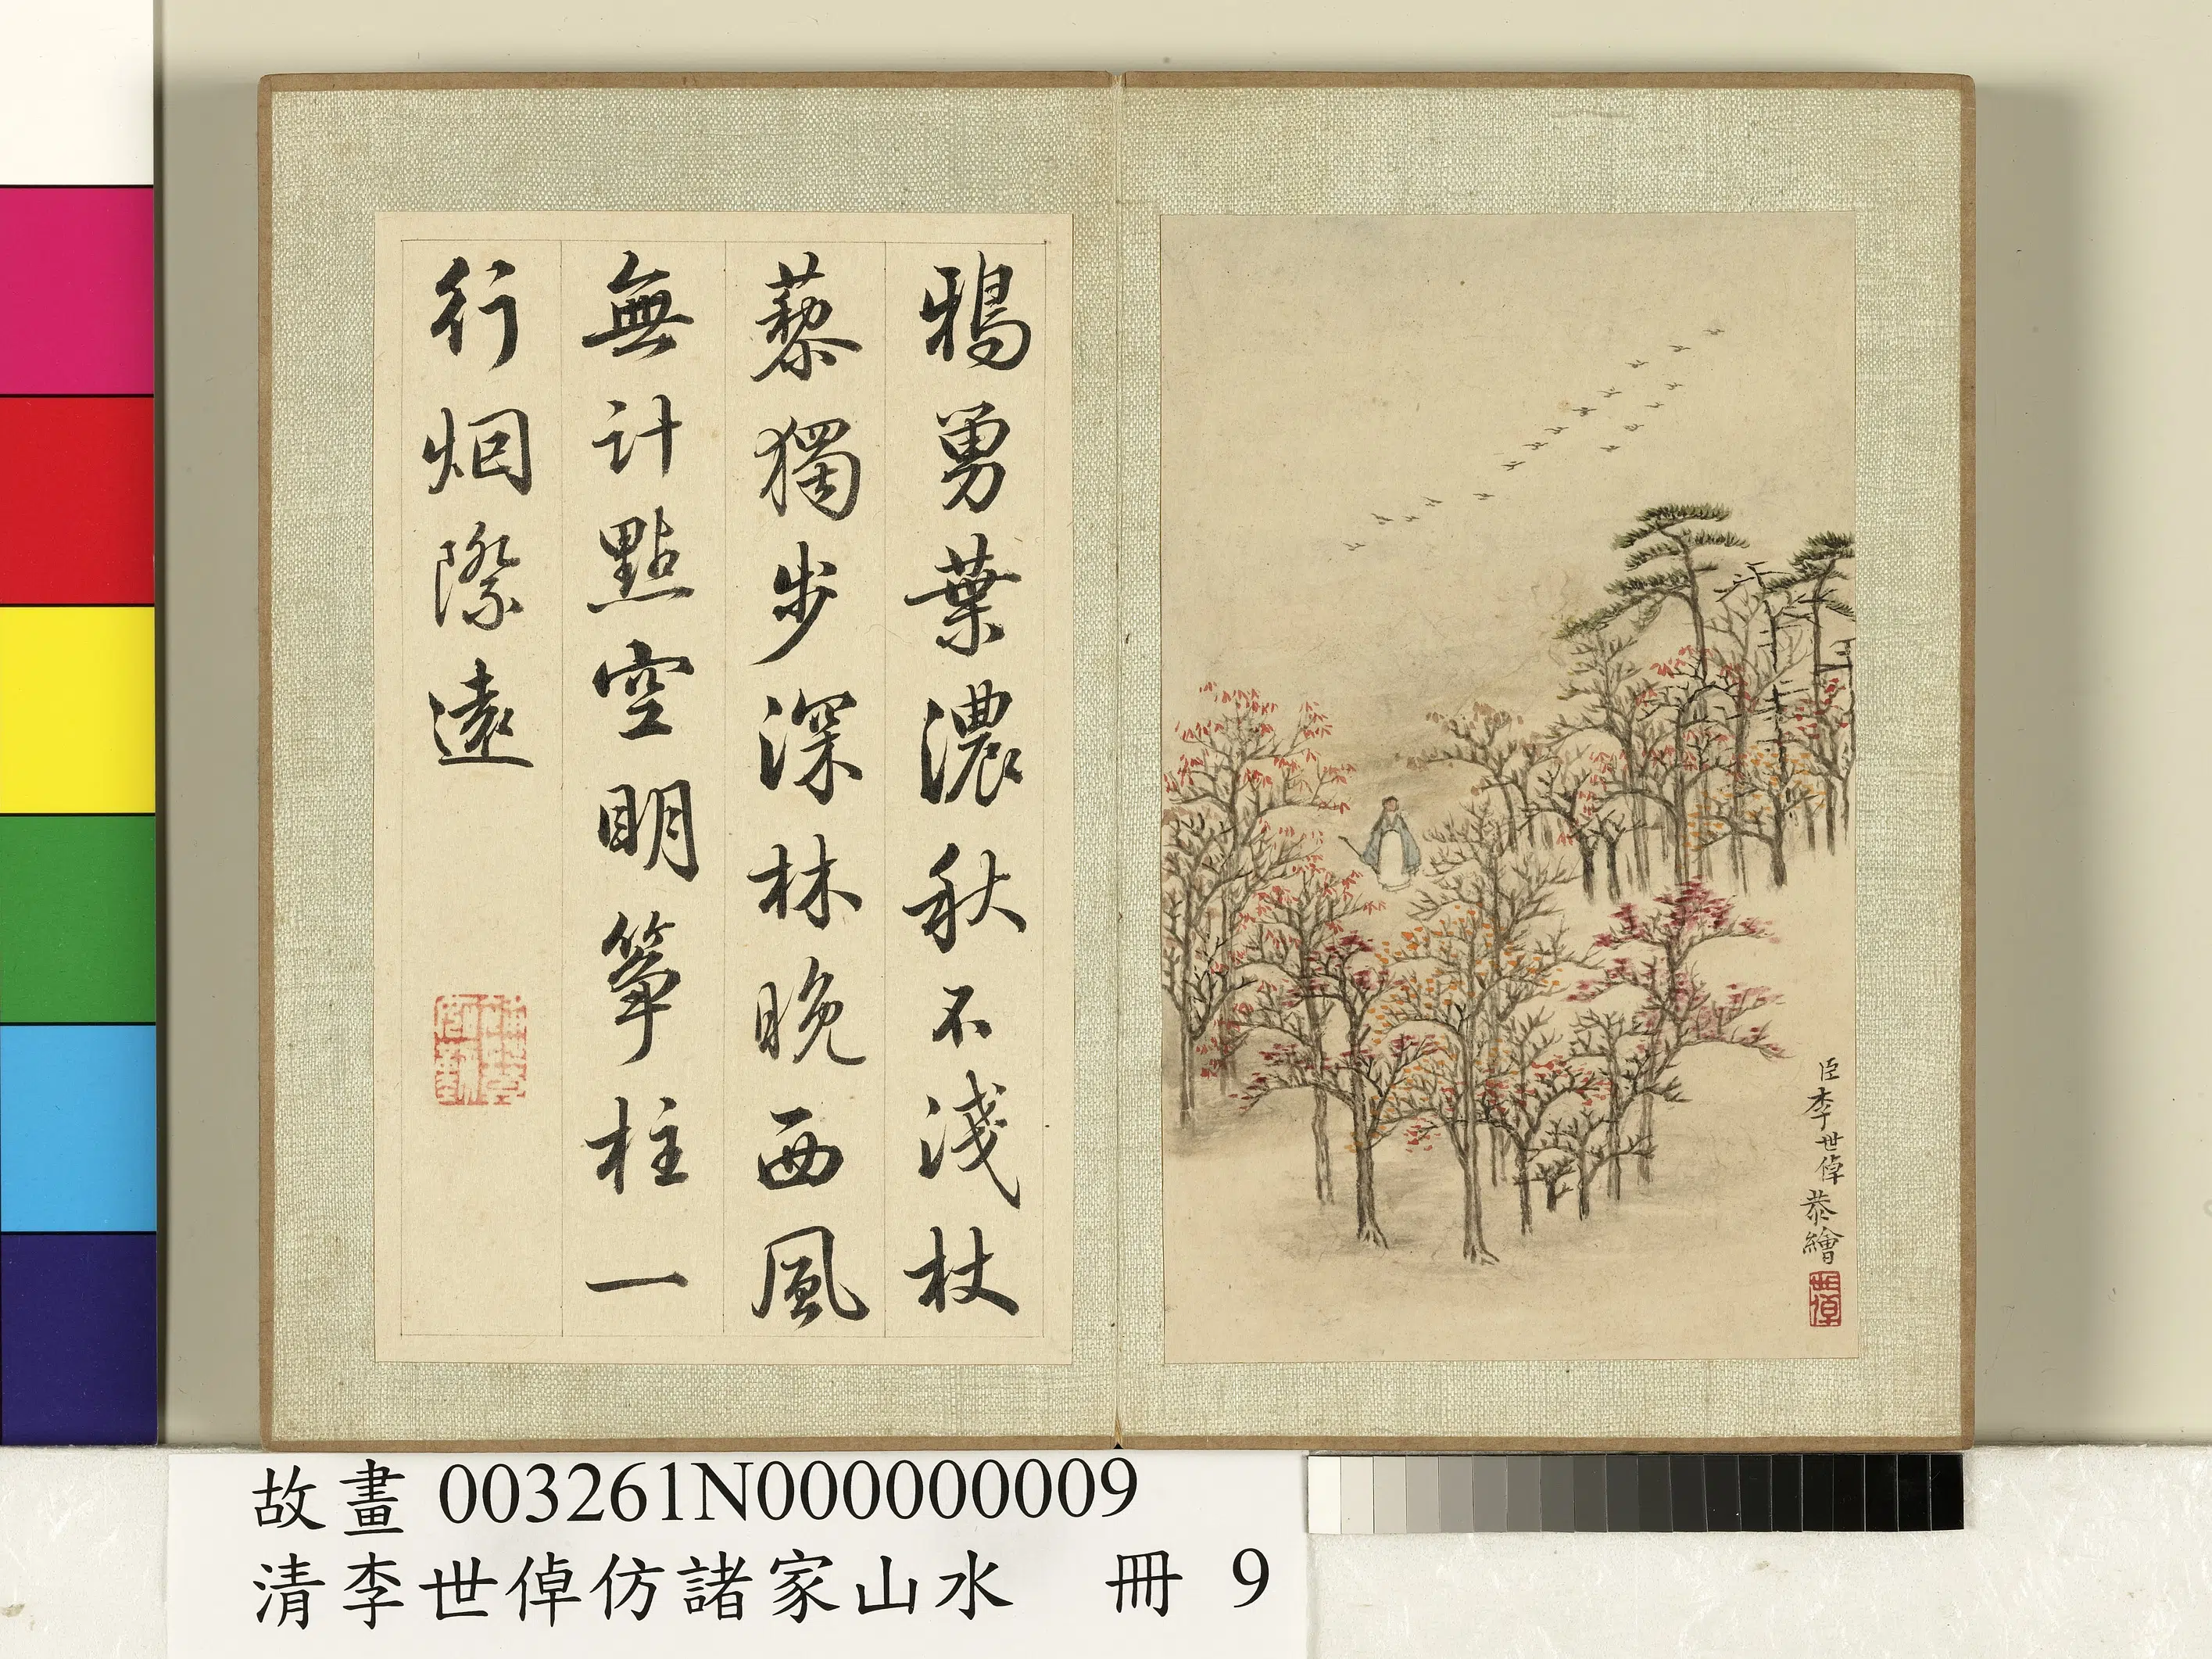 臣李世倬恭繪
世倬
鴉舅葉濃秋不淺杖
藜獨步深林晚西風
無計點空明箏柱一
行烟際遠
故畫 003261N000000009
清李世倬仿諸家山水 冊 9